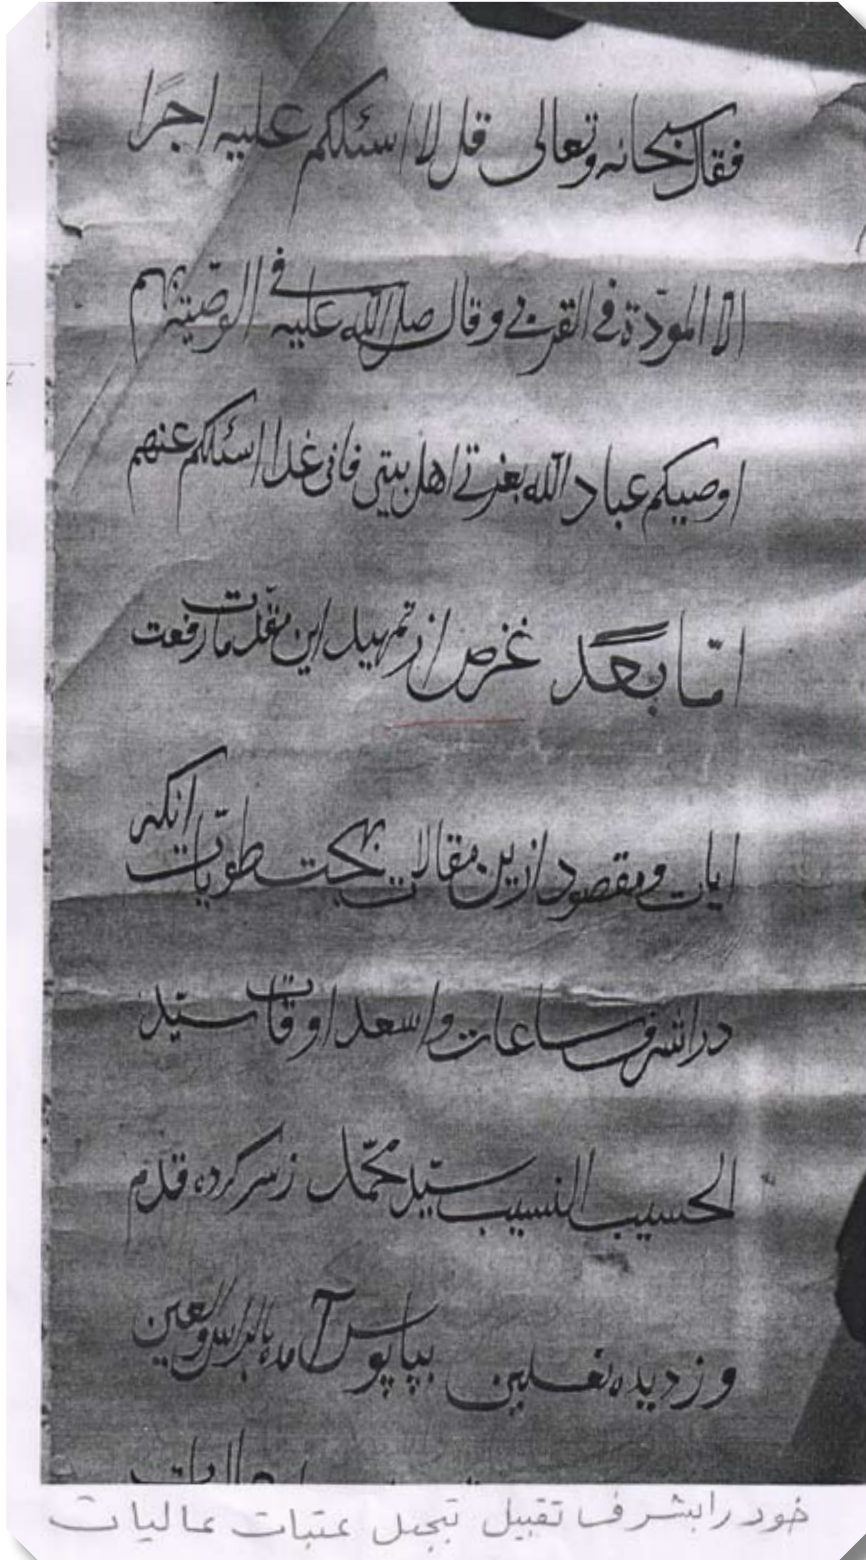 فقال سبحانه وتعالی قل لا اسئلکم علیه اجرًا
الا المودّة فی القربی و قال صلی الله علیه فی الوصیّة بهم
اوصیکم عباد الله بعترتی اهل بیتی فانی غدا اسئلکم عنهم
امّا بعد غرض از تمهید این مقدّمات رفعت
ایات و مقصود ازین مقالات بهجت طویّات انکه
در اشرف ساعات و اسعد اوقات سیّد
الحسیب النسیب سیّد محمّد ز سر کرده قدم
و ز دیده نعلین بپابوس آمده بالراس والعین
خود را بشرف تقبیل تبجیل عتبات عالیات